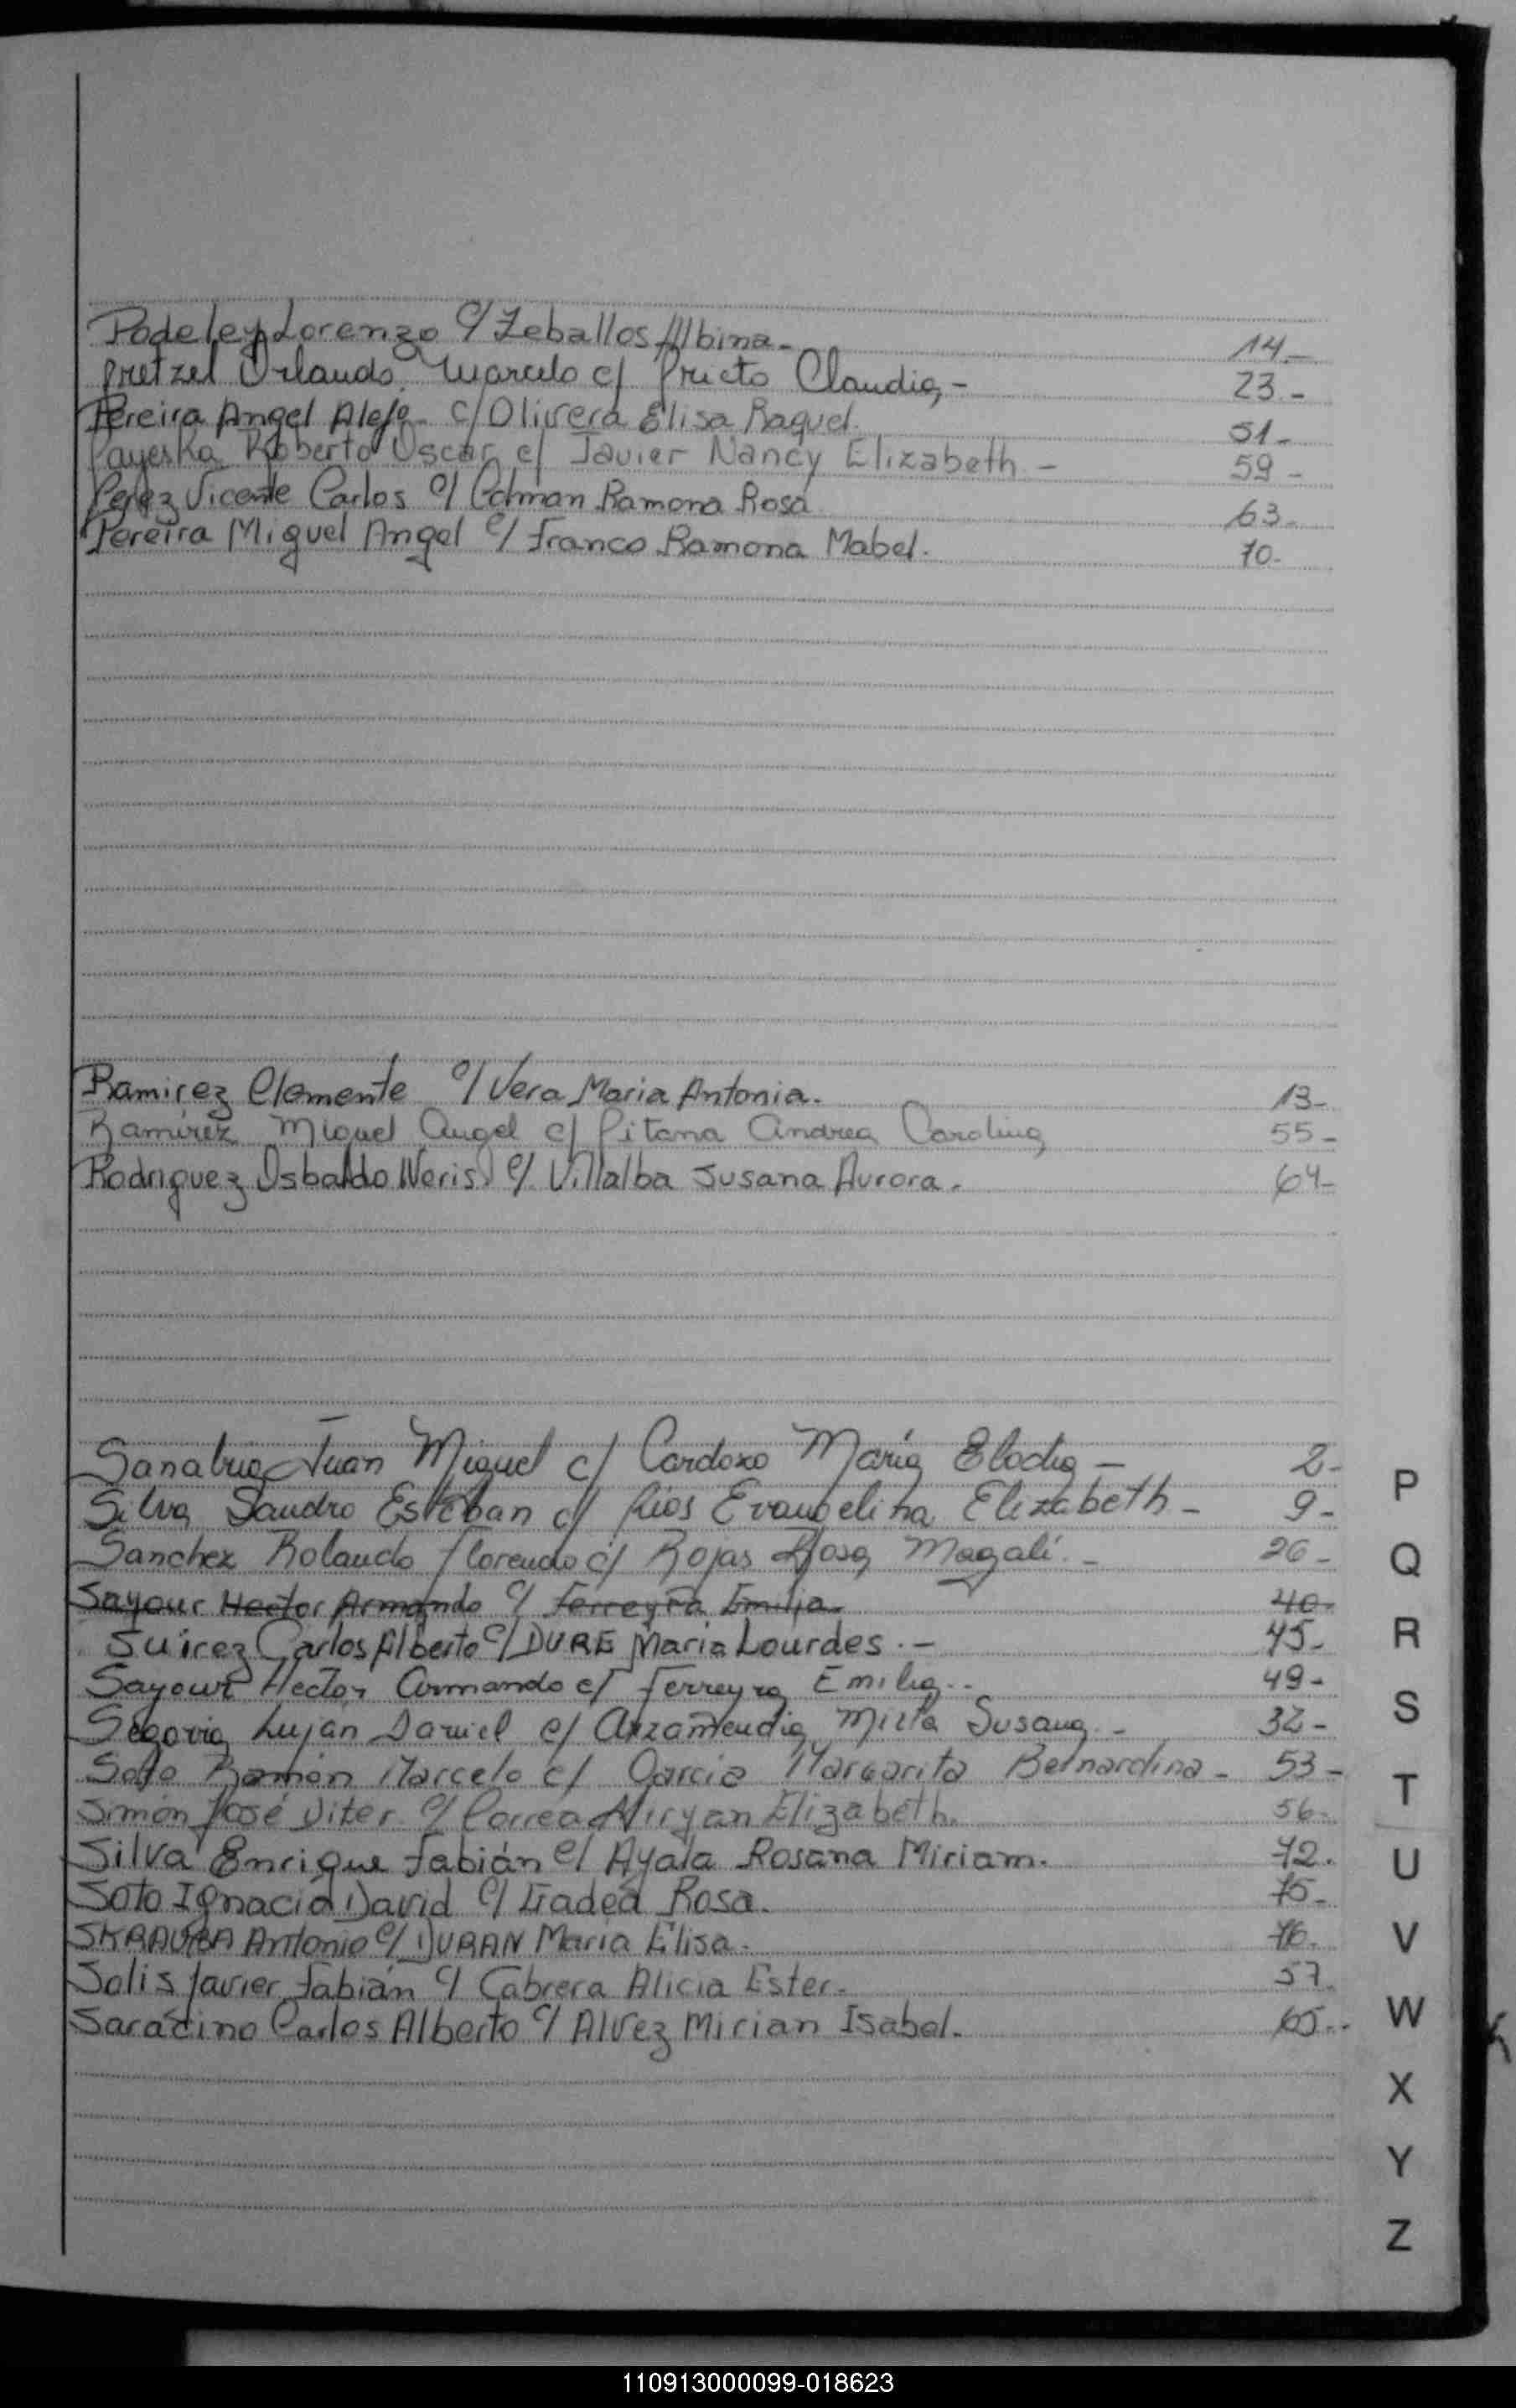 Podeley Lorenzo c/ Zeballos Albina.- 14.-
Pretzel Orlando Marcelo c/ Prieto Claudia,- 23.-
Pereira Angel Alejo c/ Olivera Elisa Raquel. 51.-
Payeska Roberto Oscar c/ Javier Nancy Elizabeth.- 59-
Perez Vicente Carlos c/ Colman Ramona Rosa 63.
Pereira Miguel Angel c/ Franco Ramona Mabel. 70-
Ramirez Clemente c/ Vera Maria Antonia. 13-
Ramirez Miguel Angel c/ Pitana Andrea Carolina 55-
Rodriguez Osbaldo Neris c/ Villalba Susana Aurora. 64-
Sanabria Juan Miguel c/ Cardozo María Elodia - 2-
Silva Sandro Esteban c/ Rios Evangelina Elizabeth - 9-
Sanchez Rolando Florencio c/ Rojas Rosa Magalí. - 26-
Sayour Hector Armando c/ Ferreyra Emilia. 40-
Suirez Carlos Alberto c/ DURE Maria Lourdes.- 45-
Sayour Hector Armando c/ Ferreyra Emilia.. 49-
Segovia Luján Daniel c/ Arzamendia Mirta Susana.- 32-
Soto Ramón Marcelo c/ Garcia Margarita Bernardina- 53-
Simón José Viter c/ Correa Miryan Elizabeth. 56-
Silva Enrique Fabián c/ Ayala Rosana Miriam. 72.
Soto Ignacio David c/ Rosa. 75-
Antonio c/ DURAN Maria Elisa. 76.
Solis Javier Fabián c/ Cabrera Alicia Ester. 57.
Saracino Carlos Alberto c/ Alvez Mirian Isabel. 65..
P
Q
R
S
T
U
V
W
X
Y
Z
110913000099-018623